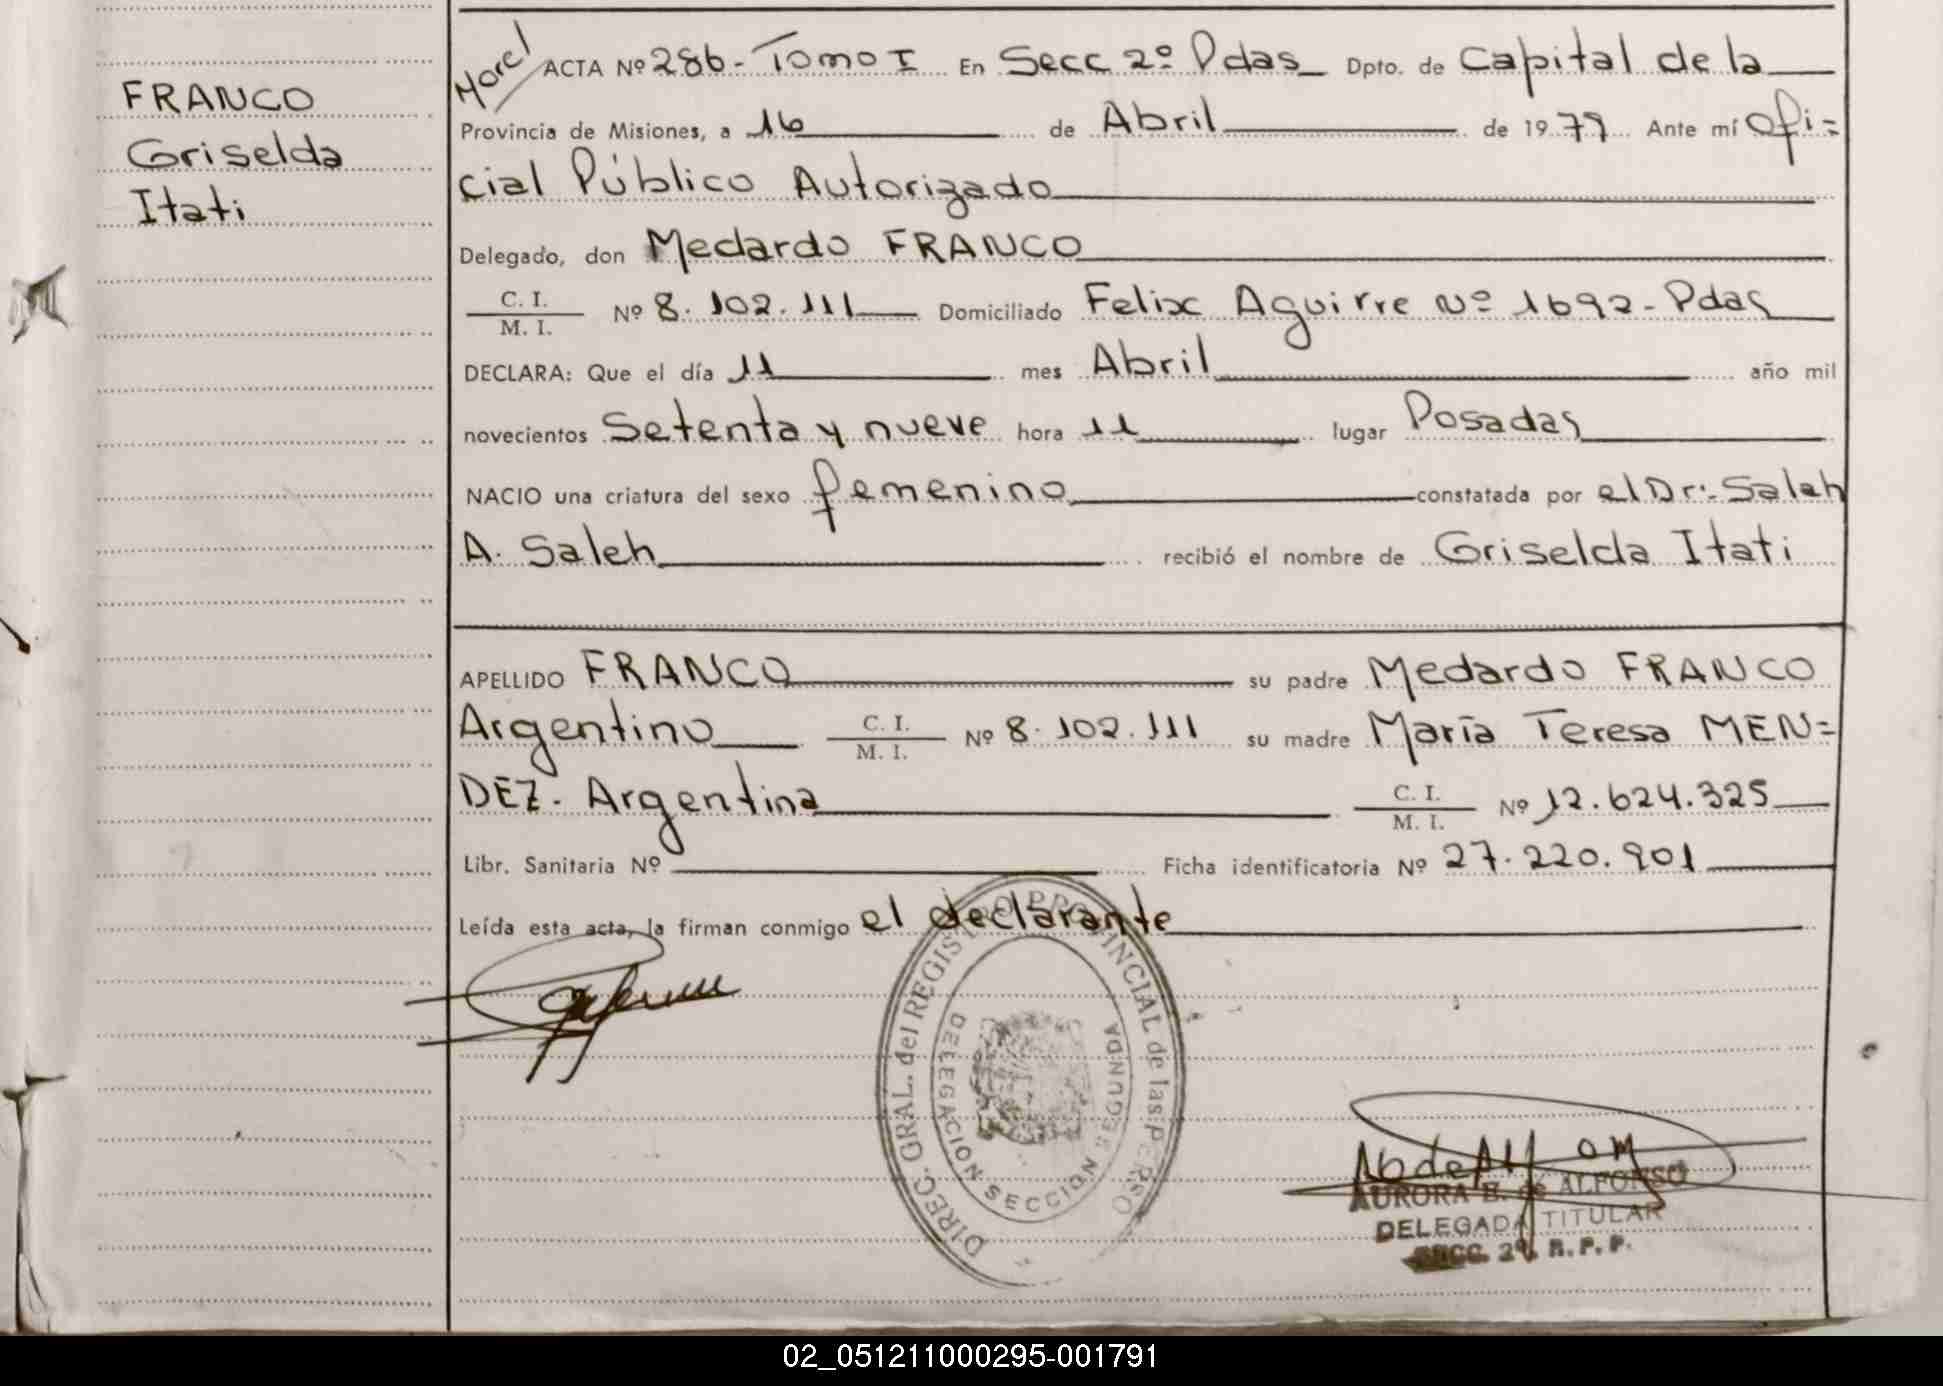 FRANCO
Griselda
Itati
Morel
ACTA Nº 286 - Tomo I En Secc 2º Pdas Dpto. de Capital de la
Provincia de Misiones, a 16 de Abril de 1979 Ante mí Ofi=
cial Público Autorizado
Delegado, don Medardo FRANCO
C. I.
M. I. Nº 8.102.111 Domiciliado Felix Aguirre Nº 1692 - Pdas
DECLARA: Que el día 11 mes Abril año mil
novecientos Setenta y nueve hora 11 lugar Posadas
NACIO una criatura del sexo femenino constatada por el Dr:- Saleh
A. Saleh recibió el nombre de Griselda Itati
APELLIDO FRANCO su padre Medardo FRANCO
Argentino C. I.
M. I. Nº 8.102.111 su madre María Teresa MEN=
DEZ - Argentina C. I.
M. I. Nº 12.624.325
Libr. Sanitaria Nº Ficha identificatoria Nº 27.220.901
Leída esta acta, la firman conmigo el declarante
DIREC. GRAL. del REGISTRO PROVINCIAL de las PERSO
DELEGACION SECCION SEGUNDA
AURORA B. de ALFONSO
DELEGADA TITULAR
SECC. 2º. R. P. P.
02_051211000295-001791